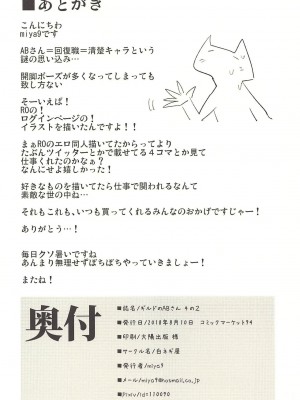 ■あとがき
こんにちわ
miya9です
ABさん＝回復職＝清楚キャラという
謎の思い込み…
開脚ポーズが多くなってしまっても
致し方ない
そーいえば！
ROの！
ログインページの！
イラストを描いたんですよ！！
まぁROのエロ同人描いてたからってより
たぶんツイッターとかで載せてる４コマとか見て
仕事くれたのかなぁ？
なんにせよ嬉しかった！
好きなものを描いてたら仕事で関われるなんて
素敵な世の中ね…
それもこれも、いつも買ってくれるみんなのおかげですじゃー！
ありがとう…！
毎日クソ暑いですね
あんまり無理せずぼちぼちやっていきましょー！
またね！
奥付
■誌名/ギルドのABさん その2
■発行日/2018年8月10日 コミックマーケット94
■印刷/大陽出版 様
■サークル名/白ネギ屋
■発行者/miya9
■メール/miya9@hotmail.co.jp
■Pixiv/id=110090